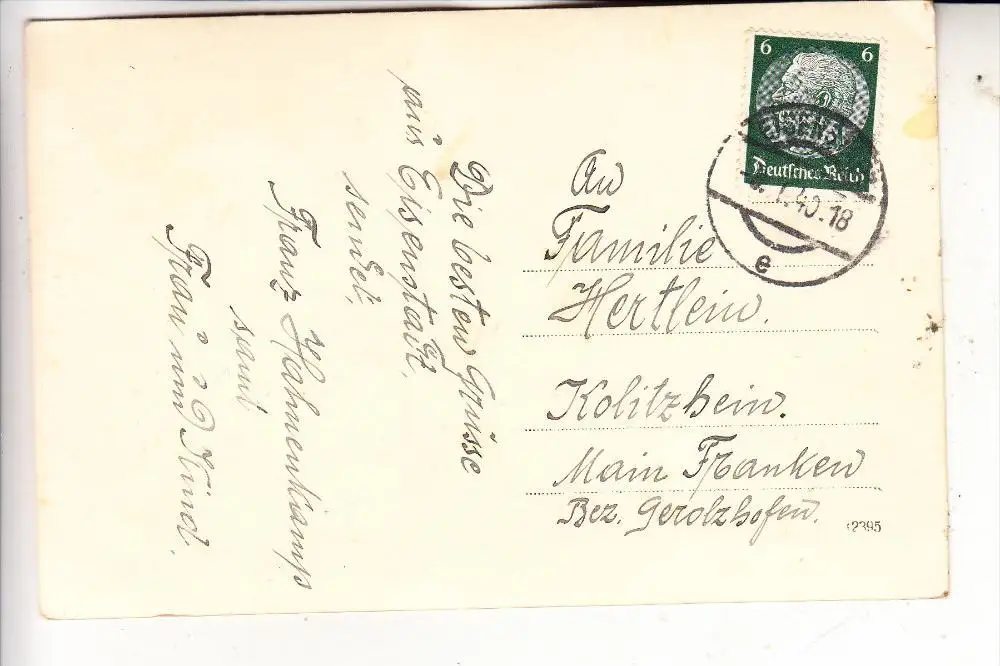 Die besten Grüsse
aus Eisenstadt.
sendet,
Franz Hahnenkamp
samt
Frau und Kind.
6 6
Deutsches Reich
40.18
e
An
Familie
Hertlein.
Kolitzhein.
Main Franken
Bez. Gerolzhofen.
2395